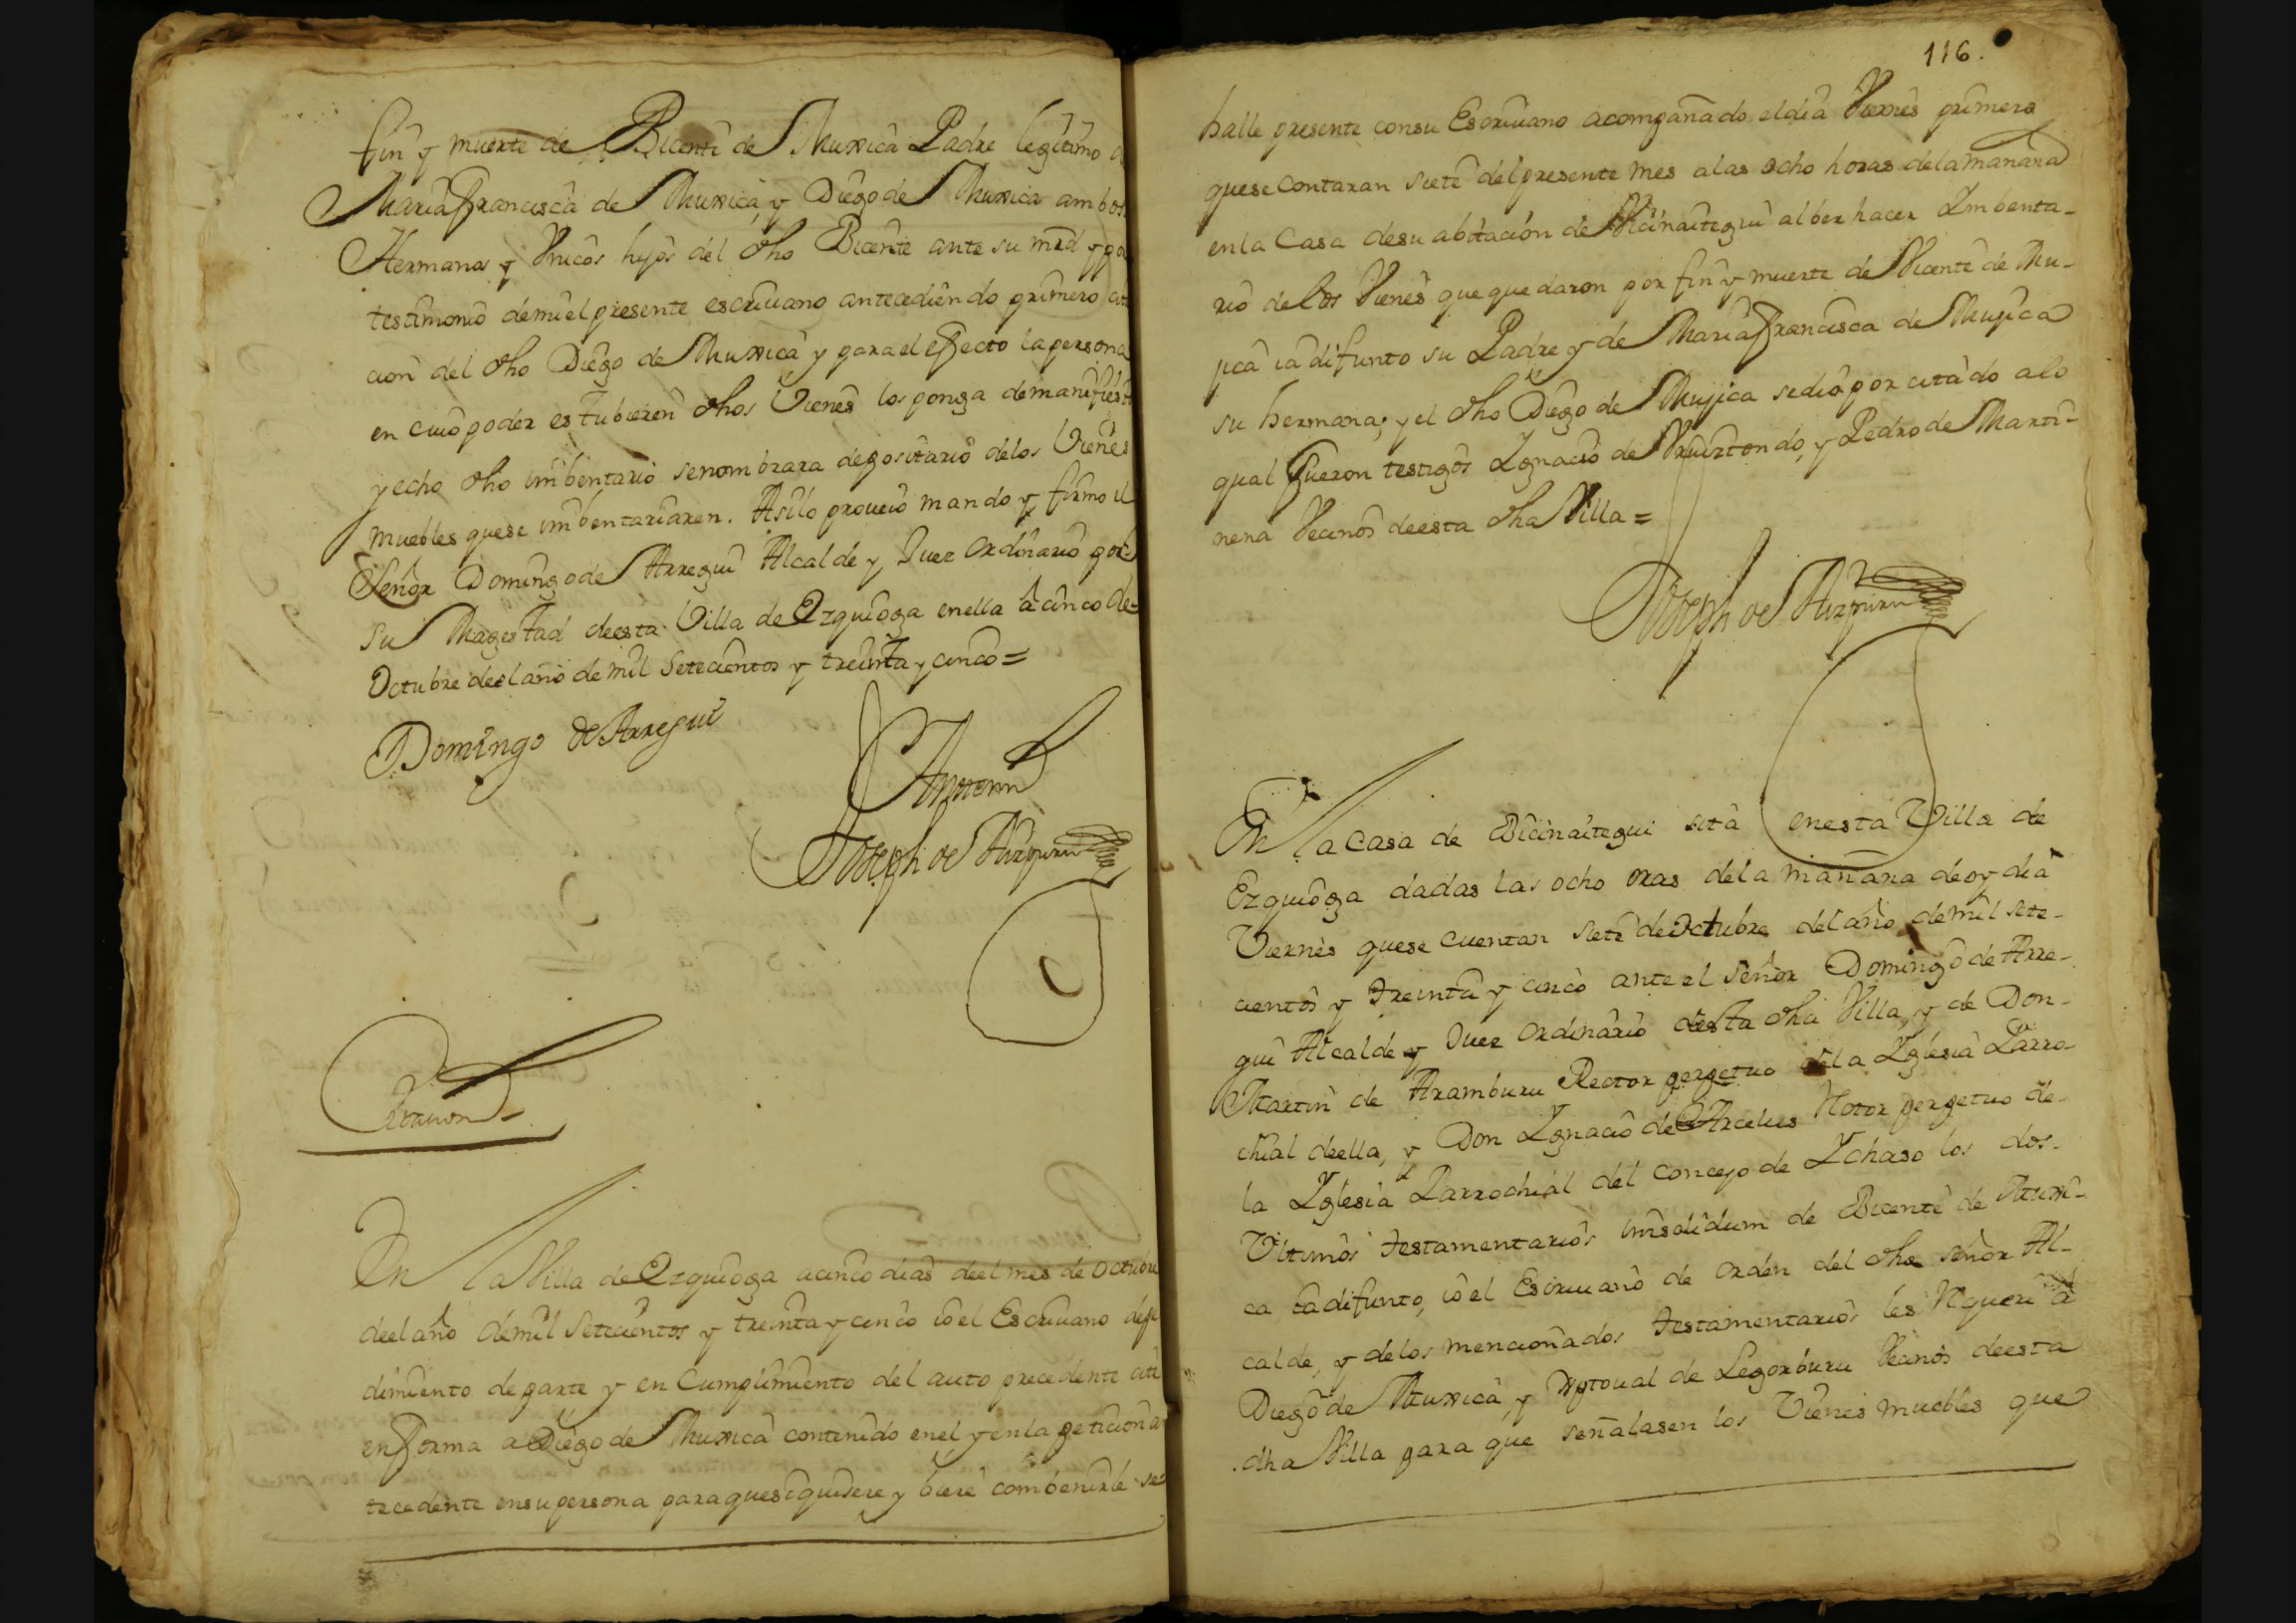 fin y muerte de Bicente de Muxica Padre legitimo
Maria Francisca de Muxica, y Diego de Muxica ambos
Hermanos y Vnicos hijos del dho Bicente ante su mrd y por
testimonio de mi el presente escriuano antecediendo primero cita
cion del dho Diego de Muxica y para el efecto la persona
en cuio poder estubieren dhos Vienes los ponga de manifiesto
y echo dho imbentario se nombrara depositario de los Vienes
muebles que se imbentariaren. Asi lo proueio mando y firmo el
Señor Domingo de Arregui Alcalde y Juez Ordinario por
su Magestad de esta Villa de Ezquioga en ella a cinco de
Octubre de el año de mil Setecientos y treinta y cinco =
Domingo de Arregui
Antemi
Joseph de Aizpuru
Citacion
En la Villa de Ezquioga a cinco dias de el mes de Octubre
de el año de mil Setecientos y treinta y cinco io el Escriuano de pe
dimiento de parte y en Cumplimiento del auto precedente cite
en forma a Diego de Muxica contenido en el y en la peticion an
tecedente en su persona para que si quisiere y biere combenirle se
116.
halle presente con su Escriuano acompañado el dia Viernes primero
que se Contaran siete del presente mes a las ocho horas de la mañana
en la Casa de su abitación de Vicinaitegui al ber hacer Imbenta-
rio de los Vienes que quedaron por fin y muerte de Vicente de Mu-
jica ia difunto su Padre y de Maria Francisca de Mujica
su hermana; y el dho Diego de Mujica se dio por citado a lo
qual fueron testigos Ignacio de y Pedro de Marti-
nena Vecinos de esta dha Villa =
Joseph de Aizpuru
En la Casa de Bicinaitegui sita en esta Villa de
Ezquioga dadas las ocho oras de la mañana de oy dia
Viernes que se Cuentan siete de Octubre del año de mil sete-
cientos y treinta y cinco ante el señor Domingo de Arre-
gui Alcalde y Juez Ordinario desta dha Villa, y de Don
Martin de Aramburu Rector perpetuo de la Iglesia Parro-
chial de ella, y Don Ignacio de Arcelus Rotor perpetuo de
la Iglesia Parrochial del Concejo de Ichaso los dos
Vltimos testamentarios insolidum de Bicente de Muxi-
ca ia difunto, io el Escriuano de orden del dho señor Al-
calde, y de los mencionados testamentarios les Requeri a
Diego de Muxica, y Xptoual de Legorburu Vecinos de esta
dha Villa para que señalasen los Vienes muebles que